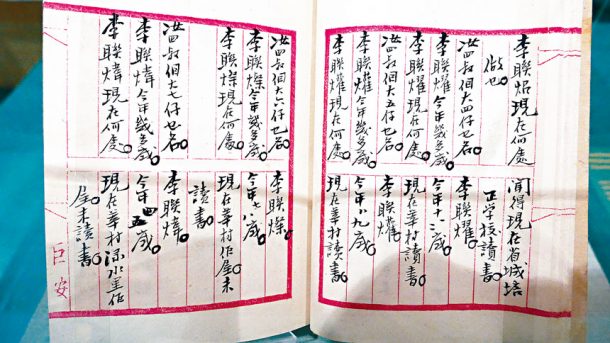 李聯炤現在何處
做乜。
洪四叔個大四仔乜名。
李聯耀今年幾多歲。
李聯耀現在何處。
洪四叔個大五仔乜名。
李聯耀今年幾多歲。
李聯耀現在何處。
聞得現在省城培
正学校讀書。
李聯耀。
今年十二歲
現在華村讀書。
李聯耀
今年八九歲
現在華村讀書。
洪四叔個大六仔乜名。
李聯燦今年幾多歲。
李聯燦現在何處。
洪四叔個大七仔乜名。
李聯煒今年幾多歲。
李聯煒現在何處。
李聯燦。
今年七八歲
現在華村作屋未
讀書。
李聯煒。
今年四五歲
現在華村水里
屋未讀書。
巨安